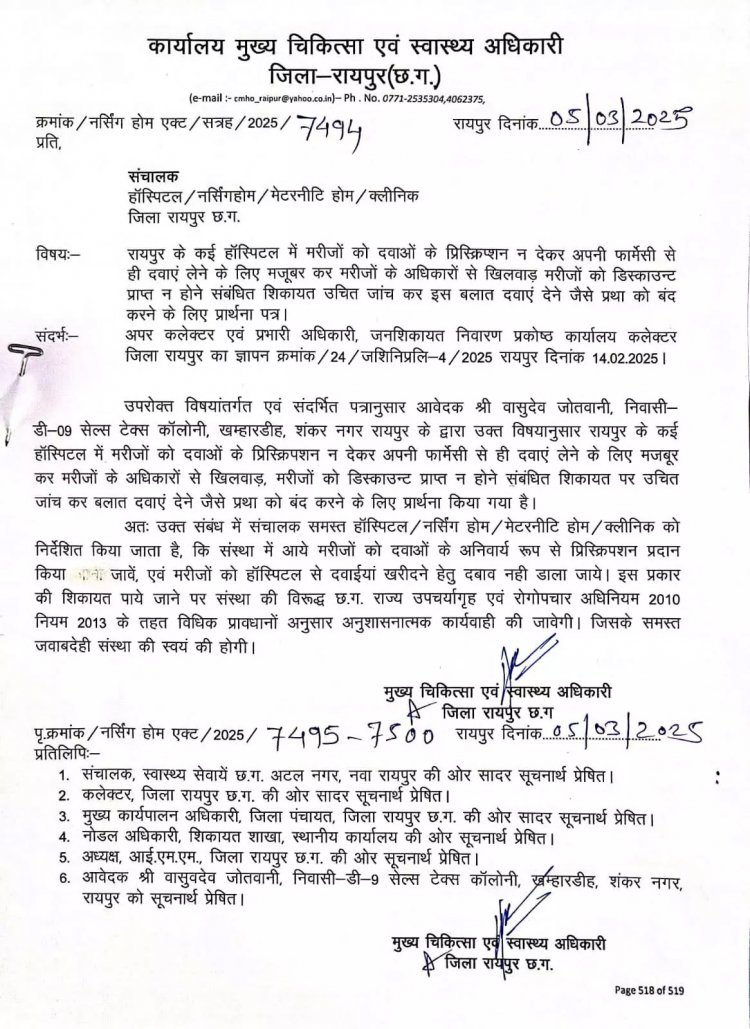 कार्यालय मुख्य चिकित्सा एवं स्वास्थ्य अधिकारी
जिला–रायपुर(छ.ग.)
(e-mail :- cmho_raipur@yahoo.co.in)– Ph . No. 0771-2535304,4062375,
क्रमांक/नर्सिंग होम एक्ट/सत्रह/2025/ 7494 रायपुर दिनांक. 05/03/2025
प्रति,
संचालक
हॉस्पिटल/नर्सिंगहोम/मेटरनीटि होम/क्लीनिक
जिला रायपुर छ.ग.
विषयः– रायपुर के कई हॉस्पिटल में मरीजों को दवाओं के प्रिस्क्रिप्शन न देकर अपनी फार्मेसी से
ही दवाएं लेने के लिए मजूबर कर मरीजों के अधिकारों से खिलवाड़ मरीजों को डिस्काउन्ट
प्राप्त न होने संबंधित शिकायत उचित जांच कर इस बलात दवाएं देने जैसे प्रथा को बंद
करने के लिए प्रार्थना पत्र।
संदर्भः– अपर कलेक्टर एवं प्रभारी अधिकारी, जनशिकायत निवारण प्रकोष्ठ कार्यालय कलेक्टर
जिला रायपुर का ज्ञापन क्रमांक/24/जशिनिप्रलि–4/2025 रायपुर दिनांक 14.02.2025।
उपरोक्त विषयांतर्गत एवं संदर्भित पत्रानुसार आवेदक श्री वासुदेव जोतवानी, निवासी–
डी–09 सेल्स टेक्स कॉलोनी, खम्हारडीह, शंकर नगर रायपुर के द्वारा उक्त विषयानुसार रायपुर के कई
हॉस्पिटल में मरीजों को दवाओं के प्रिस्क्रिपशन न देकर अपनी फार्मेसी से ही दवाएं लेने के लिए मजबूर
कर मरीजों के अधिकारों से खिलवाड़, मरीजों को डिस्काउंट प्राप्त न होने संबंधित शिकायत पर उचित
जांच कर बलात दवाएं देने जैसे प्रथा को बंद करने के लिए प्रार्थना किया गया है।
अतः उक्त संबंध में संचालक समस्त हॉस्पिटल/नर्सिंग होम/मेटरनीटि होम/क्लीनिक को
निर्देशित किया जाता है, कि संस्था में आये मरीजों को दवाओं के अनिवार्य रूप से प्रिस्क्रिपशन प्रदान
किया जावें, एवं मरीजों को हॉस्पिटल से दवाईयां खरीदने हेतु दबाव नही डाला जाये। इस प्रकार
की शिकायत पाये जाने पर संस्था की विरूद्ध छ.ग. राज्य उपचर्यागृह एवं रोगोपचार अधिनियम 2010
नियम 2013 के तहत विधिक प्रावधानों अनुसार अनुशासनात्मक कार्यवाही की जावेगी। जिसके समस्त
जवाबदेही संस्था की स्वयं की होगी।
मुख्य चिकित्सा एवं स्वास्थ्य अधिकारी
जिला रायपुर छ.ग
पृ.क्रमांक/नर्सिंग होम एक्ट/2025/ 7495-7500 रायपुर दिनांक. 05/03/2025
प्रतिलिपिः–
1. संचालक, स्वास्थ्य सेवायें छ.ग. अटल नगर, नवा रायपुर की ओर सादर सूचनार्थ प्रेषित।
2. कलेक्टर, जिला रायपुर छ.ग. की ओर सादर सूचनार्थ प्रेषित।
3. मुख्य कार्यपालन अधिकारी, जिला पंचायत, जिला रायपुर छ.ग. की ओर सादर सूचनार्थ प्रेषित।
4. नोडल अधिकारी, शिकायत शाखा, स्थानीय कार्यालय की ओर सूचनार्थ प्रेषित।
5. अध्यक्ष, आई.एम.एम., जिला रायपुर छ.ग. की ओर सूचनार्थ प्रेषित।
6. आवेदक श्री वासुवदेव जोतवानी, निवासी–डी–9 सेल्स टेक्स कॉलोनी, खम्हारडीह, शंकर नगर,
रायपुर को सूचनार्थ प्रेषित।
मुख्य चिकित्सा एवं स्वास्थ्य अधिकारी
जिला रायपुर छ.ग.
Page 518 of 519